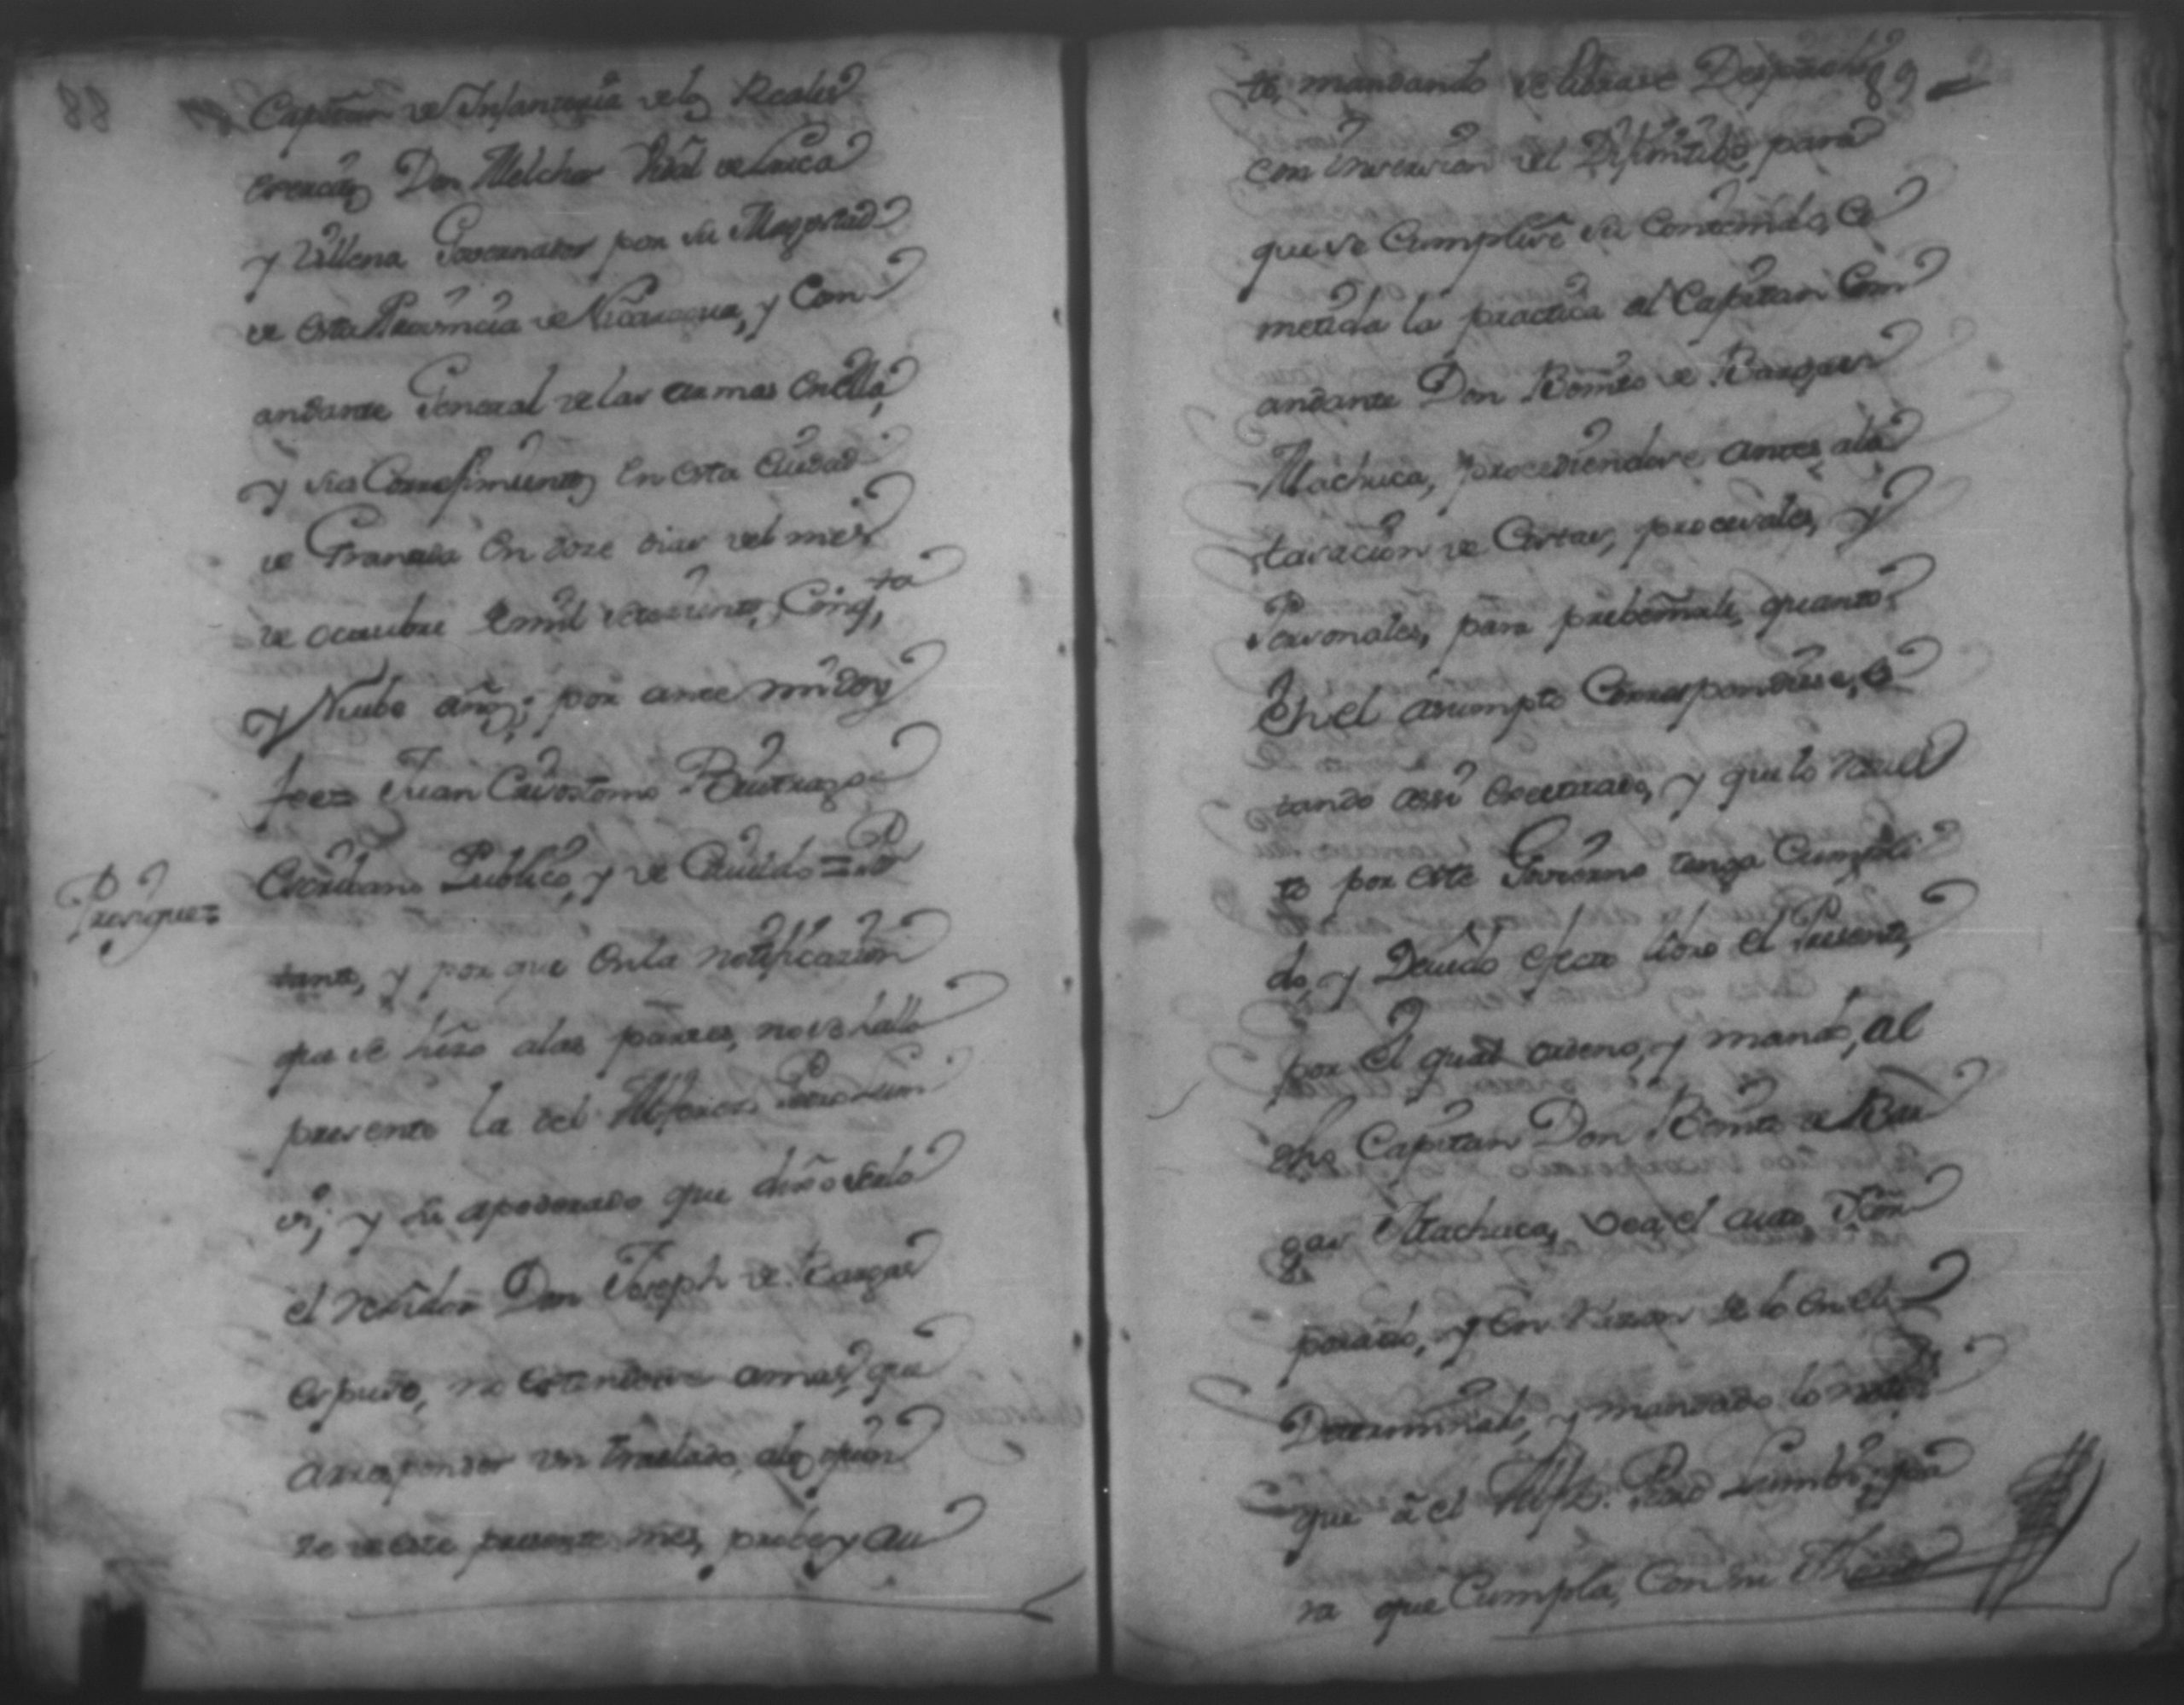 Capitan de Infanteria de los Reales
exercitos Don Melchor Vidal de Lorca
y Villena Governador por su Magestad
de esta Provincia de Nicaragua, y Com
andante General de las armas en ella,
y sus Corregimientos en esta Ciudad
de Granada en doze dias del mes
de octubre de mil setecientos, Cinq.ta
y Nuebe años; por ante mi doy
fee = Juan Crisostomo Buitrago
Escribano Publico, y de Cavildo =
Prosigue =
tante, y por que en la notificazion
que se hizo a las partes, no se hallo
presente la del Alferez Pedro Lum
vi; y su apoderado que dixo serlo
el rexidor Don Joseph de Vargas
expuso, no extenderse a mas, que
a responder un traslado, a los quin
ze de este presente mes, probey au
89
to, mandando se librase Despacho
con insercion del Difinitibo, para
que se Cumpliese su contenido, Co
metida la practica al Capitan Com
andante Don Benito de Bargas
Machuca, procediendose antes a la
tasacion de Costas, procesales, y
Personales, para prebenirle, quanto
en el asumpto Correspondiese, es
tando assi executado, y que lo resuel
to por este Govierno tenga Cumpli
do, y Devido efecto libro el Presente,
por el qual ordeno, y mando, al
dho Capitan Don Benito de Bar
gas Machuca, vea el auto
parado, y en razon de lo en el
Determinado, y mandado lo
que a el Alfz. Pedro Lumbi, pa
ra que Cumpla, Con su